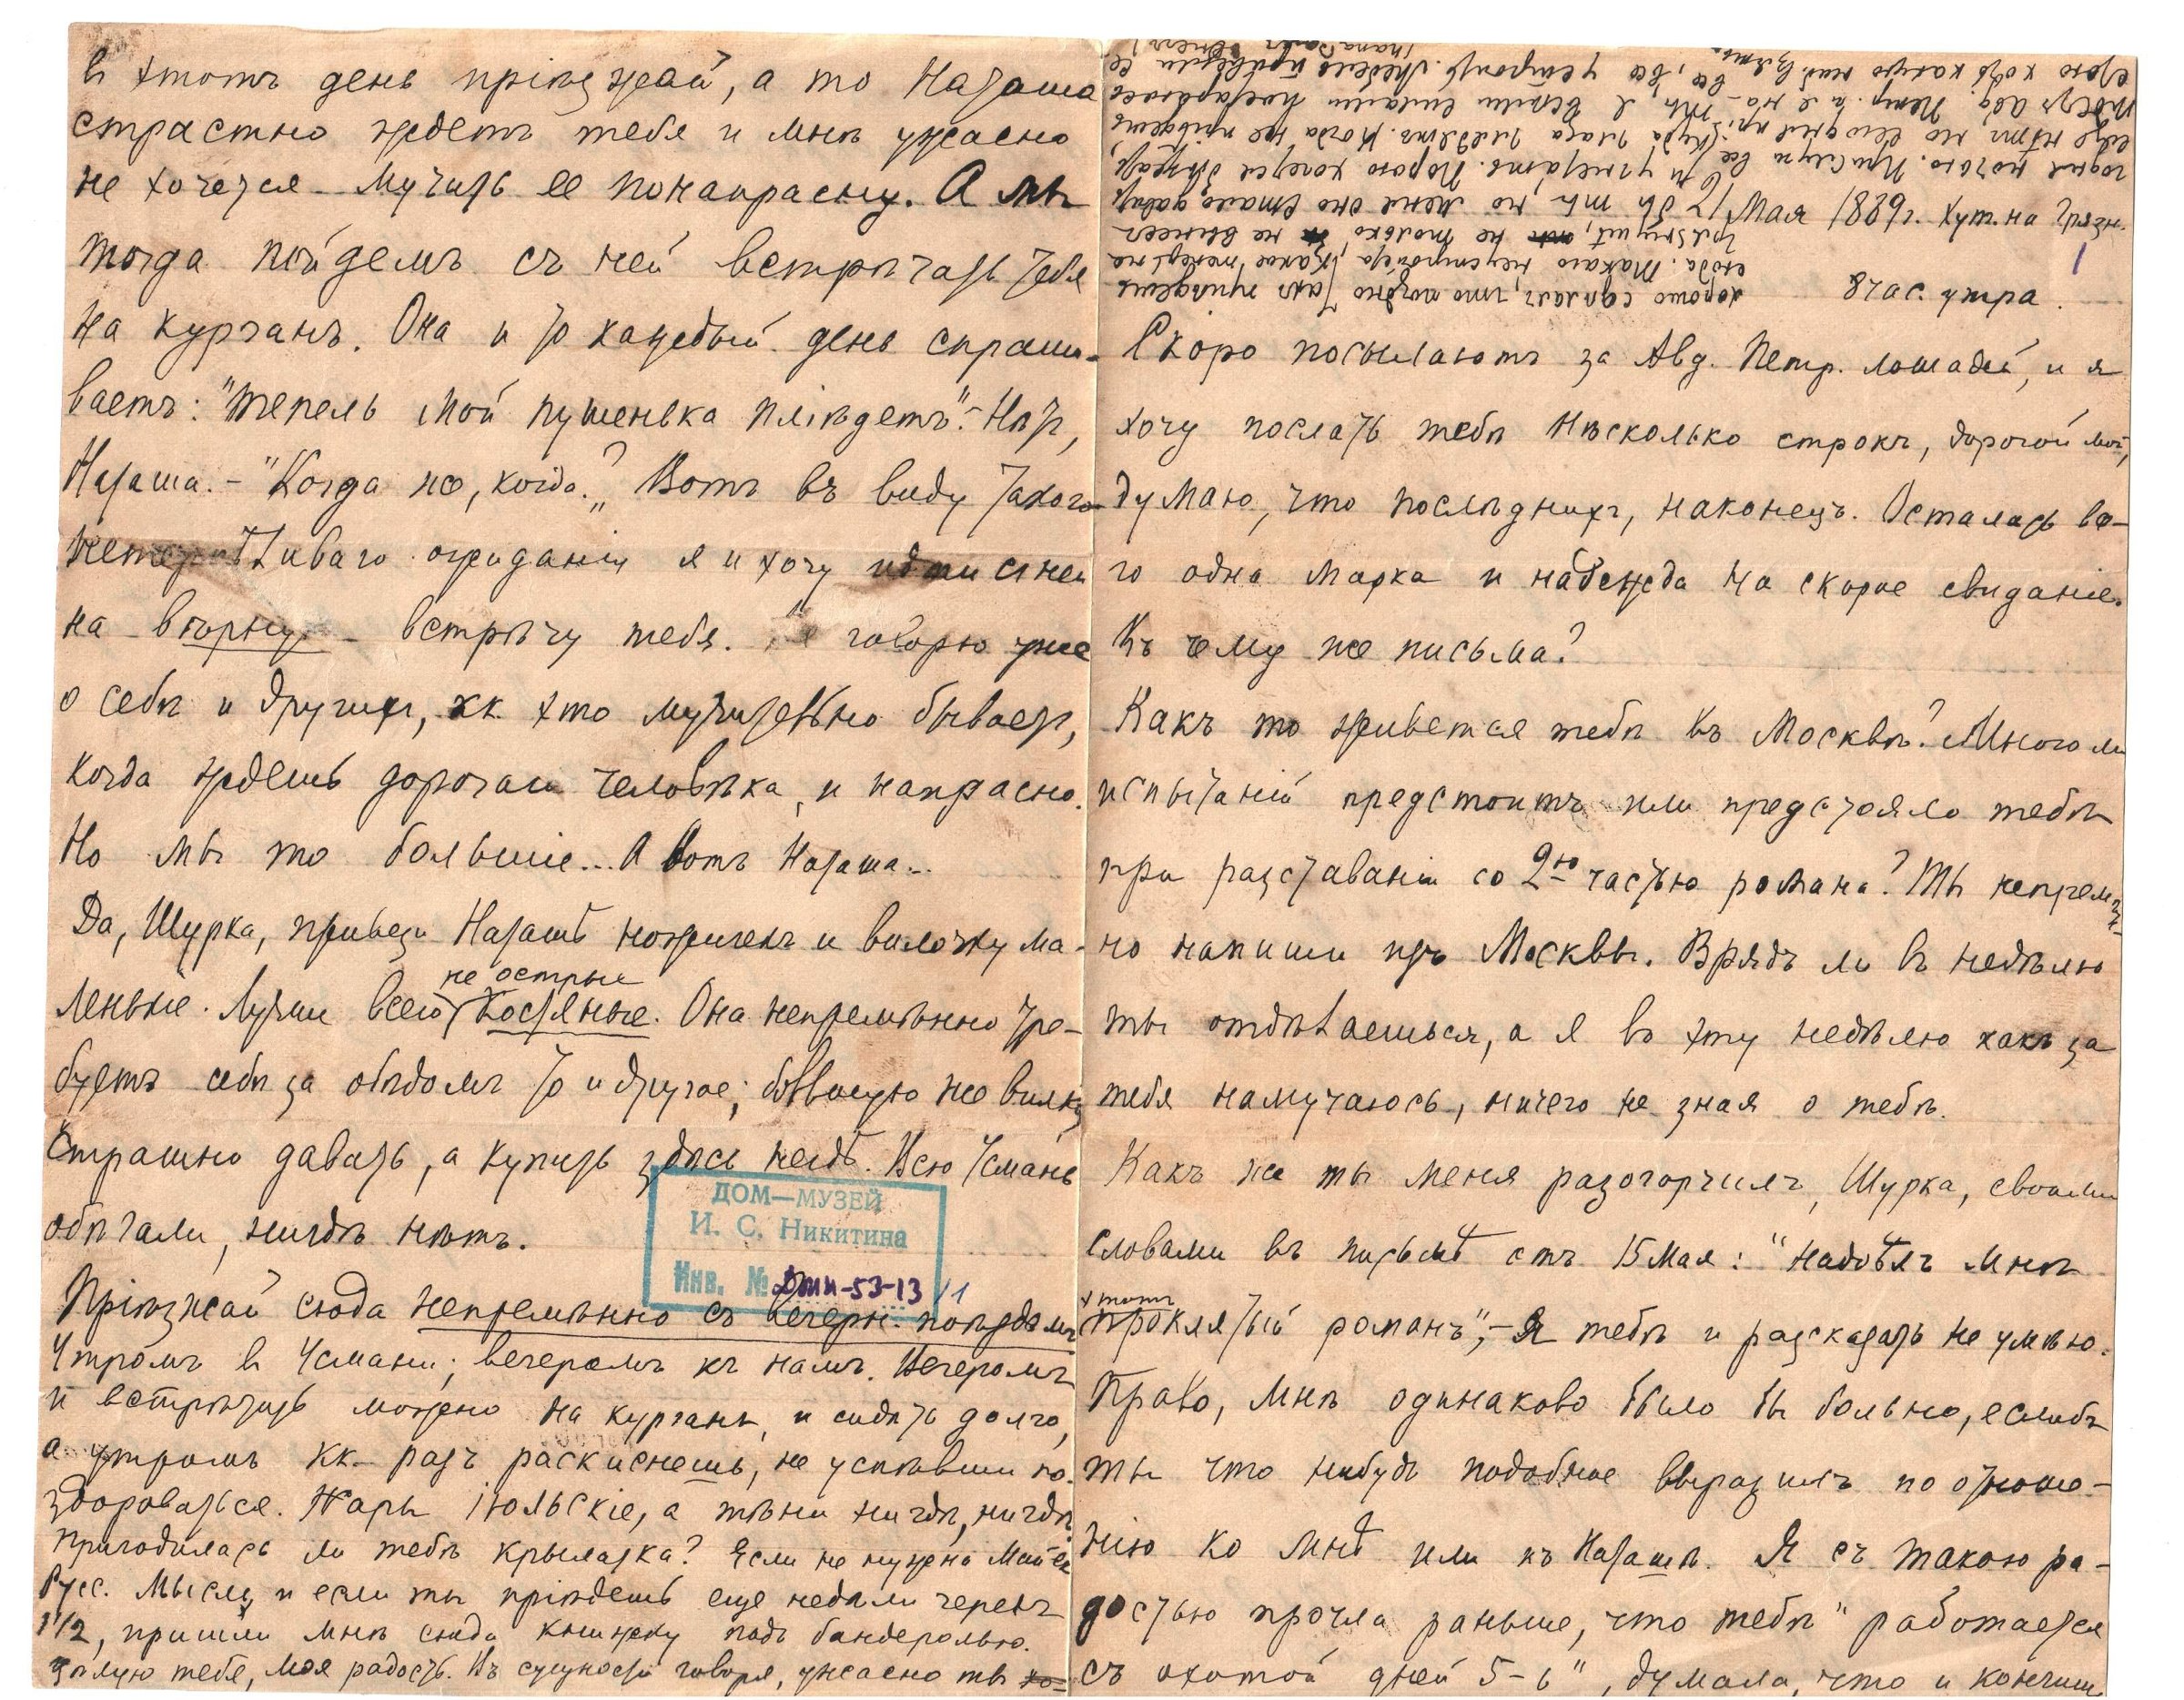 в этотъ день пріѣзжай, а то Наташа
страстно ждетъ тебя и мнѣ ужасно
не хочется мучить ее понапрасну. А мы
тогда пойдемъ съ ней встрѣчать тебя
на курганъ. Она и то каждый день спраши-
ваетъ: "тепель мой пушенька пліѣдетъ". – Нѣтъ,
Наташа. – "Когда же, когда?" Вотъ въ виду такого
нетерпѣливаго ожиданія я и хочу идти съ ней
на вѣрную встрѣчу тебя. Я говорю уже
о себѣ и другихъ, кк. это мучительно бываетъ,
когда ждешь дорогого человѣка, и напрасно.
Но мы то большіе... А вотъ Наташа...
Да, Шурка, привези Наташѣ ножичекъ и вилочку ма-
не острые
ленькіе. Лучше всего костяные. Она непремѣнно тре-
буетъ себѣ за обѣдомъ то и другое; большую же вилку
страшно давать, а купить здѣсь негдѣ. Всю Усмань
обѣгали, нигдѣ нѣтъ.
ДОМ—МУЗЕЙ
И. С. Никитина
Инв. № ДМН-53-13/1
Пріѣзжай сюда непремѣнно съ вечерн. поѣздомъ
Утромъ въ Усмани; вечеромъ къ намъ. Вечеромъ
и встрѣчать можно на курганѣ, и сидѣть долго,
а утромъ кк. разъ раскиснешь, не успѣвши по-
здороваться. Жары іюльскіе, а тѣни нигдѣ, нигдѣ.
Пригодилась ли тебѣ крылатка? Если не нужна Май
Русс. Мысль, и если ты пріѣдешь еще недѣли черезъ
1 1/2, пришли мнѣ сюда книжку подъ бандеролью.
Цѣлую тебя, моя радость. Въ сущности говоря, ужасно ты хо-
хорошо сдѣлалъ, что поздно такъ пріѣдешь
сюда. Такого неустройства, какое теперь
не только не вынесъ
бы ты, но меня оно стало давить
и угнетать. Порою хочется бѣжать,
куда глаза глядятъ. Когда же пріѣдешь
17 Мая 1889 г. Хут. на Грязн.
8 час. утра.
Скоро посылаютъ за Авд. Петр. лошадей, и я
хочу послать тебѣ нѣсколько строкъ, дорогой мой,
думаю, что послѣднихъ, наконецъ. Осталась все-
го одна марка и надежда на скорое свиданіе.
Къ чему же письма?
Какъ то живется тебѣ въ Москвѣ? Много ли
испытаній предстоитъ или предстояло тебѣ
при разставаніи со 2ою частью романа? Ты непремѣн-
но напиши изъ Москвы. Врядъ ли въ недѣлю
ты отдѣлаешься, а я въ эту недѣлю какъ за
тебя намучаюсь, ничего не зная о тебѣ.
Какъ же ты меня разогорчилъ, Шурка, своими
словами въ письмѣ отъ 15 Мая: "Надоѣлъ мнѣ
этотъ
проклятый романъ", – Я тебѣ и разсказать не умѣю.
Право, мнѣ одинаково было бы больно, еслибъ
ты что нибудь подобное выразилъ по отноше-
нію ко мнѣ или къ Наташѣ. Я съ такою ра-
достью прочла раньше, что тебѣ "работается
съ охотой дней 5-6", думала, что и кончишь